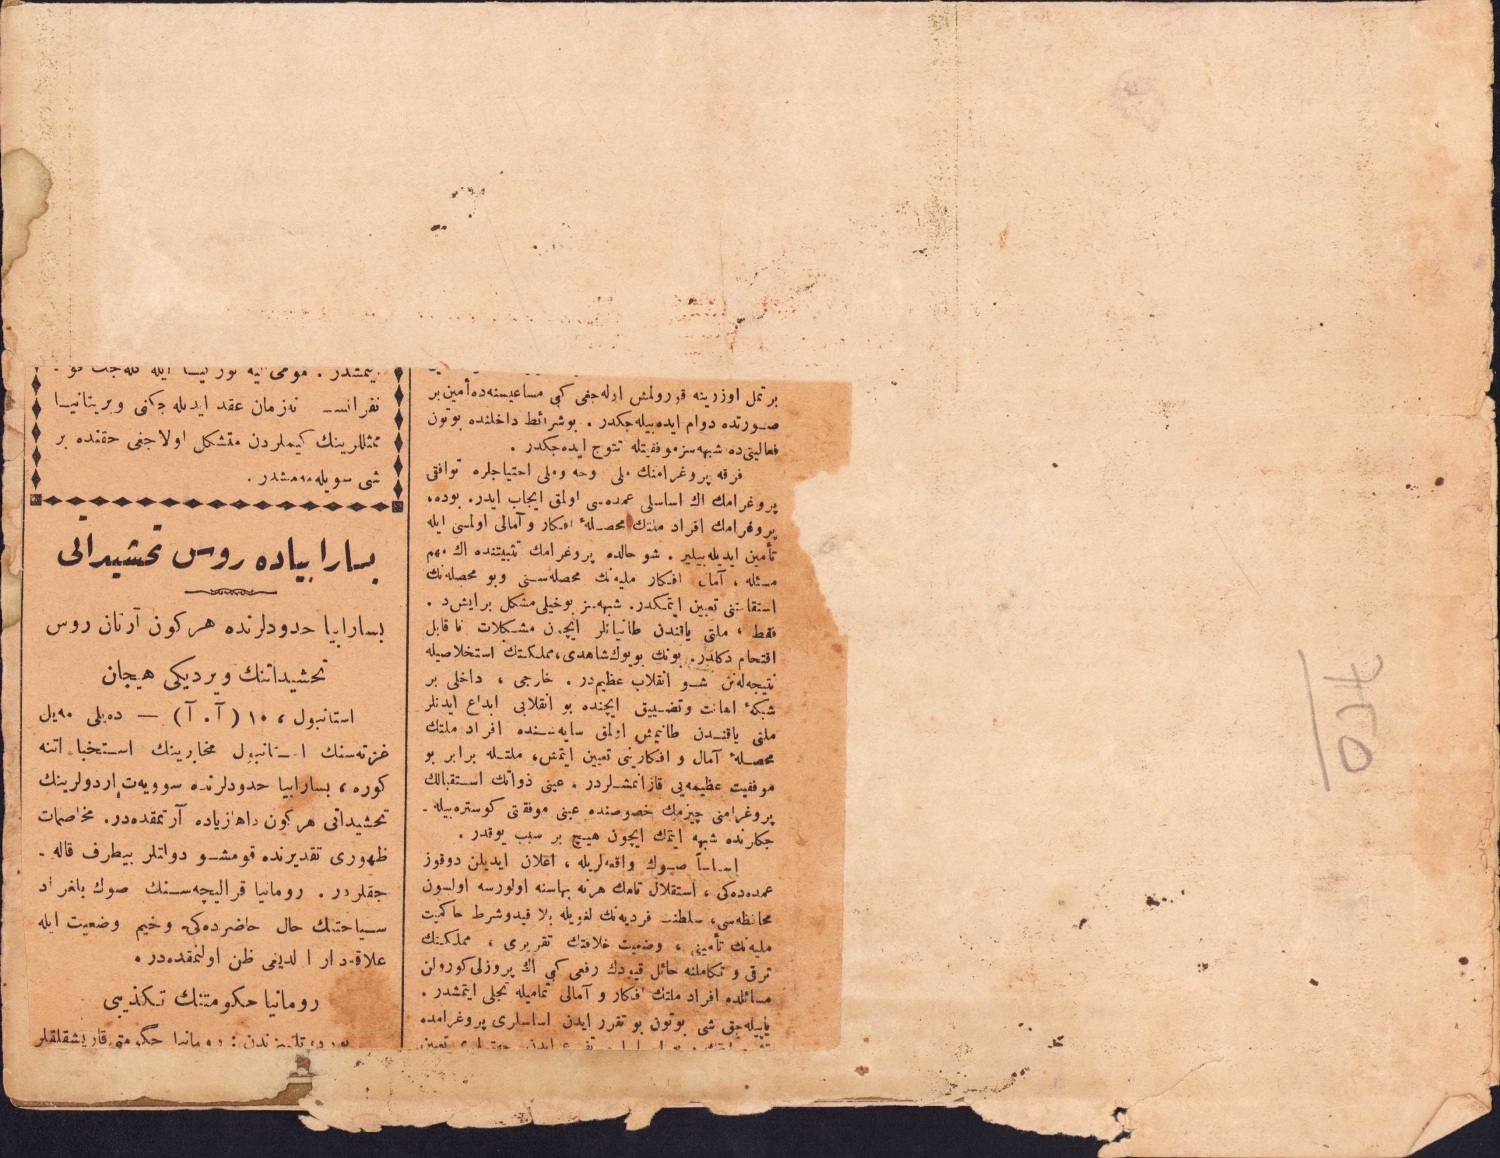 بر تمل اوزرینه قورولمش اوله‌جغی کبی مساعیسنه‌ده أمین بر
صورتده دوام ایده‌بیله‌جکدر . بو شرائط داخلنده بوتون
فعالیتی‌ده شبهه‌سز موفقیتله تتوج ایده‌جکدر .
فرقه پروغرامنك ملی وحه وملی احتیاجلره توافقی
پروغرامك اك اساسلی عمده‌سی اولمق ایجاب ایدر. بوده،
پروغرامك افراد ملتك محصلهٔ افکار و آمالی اولمسی ایله
تأمین ایدیله‌بیلیر . شو حالده پروغرامك تثبیتنده اك مهم
مسئله ، آمال افکار ملیه‌نك محصله‌سنی وبو محصله‌نك
استقامتنی تعیین ایتمکدر. شبهه‌سز بوخیلی مشکل بر ایشدر .
فقط ، ملتی یاقندن طانیانلر ایچون مشکلات نا قابل
اقتحام دکلدر. بونك بویوك شاهدی، مملکتك استخلاصیله
نتیجه‌له‌نن شو انقلاب عظیم‌در . خارجی ، داخلی بر
شبکهٔ اهانت وتضییق ایچنده بو انقلابی ابداع ایدنلر
ملتی یاقندن طانیمش اولمق سایه‌سنده افراد ملتك
محصلهٔ آمال و افکارینی تعیین ایتمش، ملتله برابر بو
موفقیت عظیمه‌یی قازانمشلردر . عینی ذواتك استقبالك
پروغرامنی چیزمك خصوصنده عینی موفقتی کوستره‌بیله -
جکارنده شبهه ایتمك ایچون هیچ بر سبب یوقدر .
اساساً صوك واقعه‌لریله ، اعلان ایدیلن دوقوز
عمده‌ده‌کی ، استقلال تامك هر نه بهاسنه اولورسه اولسون
محافظه‌سی، سلطنت فردیه‌نك لغویله بلا قیدوشرط حاکمیت
ملیه‌نك تأمینی ، وضعیت خلافتك تقریری ، مملکتك
ترقی و تکاملنه حائل قیودك رفعی کبی اك پروزلی کورولن
مسائلده افراد ملتك افکار و آمالی تمامیله تجلی ایتمشدر .
یاپیله‌جق شی بوتون بو تقرر ایدن اساسلری پروغرامده
ایتمشدر . مومی الیه تورکیا ایله
نه‌زمان عقد ایدیله جکنی و بریتانیا
ممثللرینك کیملردن متشکل اولاجغی حقنده بر
شی سویله‌مه‌مشدر .
بسارابیاده روس تحشیداتی
بسارابیا حدودلرنده هرکون آرتان روس
تحشیداتنك ویردیکی هیجان
استانبول ، ۱۰ ( آ . آ ) — ده‌یلی مه‌یل
غزته‌سنك استانبول مخابرینك استخباراتنه
کوره ، بسارابیا حدودلرنده سوویه‌ت اردولرینك
تحشیداتی هرکون داها زیاده آرتمقده‌در. مخاصمات
ظهوری تقدیرنده قومشو دولتلر بیطرف قاله -
جقلردر . رومانیا قرالیچه‌سنك صوك بلغراد
سیاحتنك حال حاضرده‌کی وخیم وضعیت ایله
علاقه‌دار اولدیغی ظن اولنمقده‌در .
رومانیا حکومتنك تکذیبی
رومانیا حکومتی قاریشقلقلر